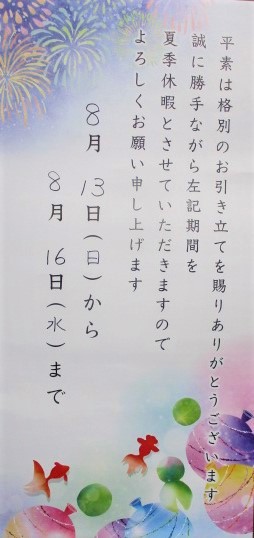 平素は格別のお引き立てを賜りありがとうございます
誠に勝手ながら左記期間を
夏季休暇とさせていただきますので
よろしくお願い申し上げます
8月13日(日)から
8月16日(水)まで